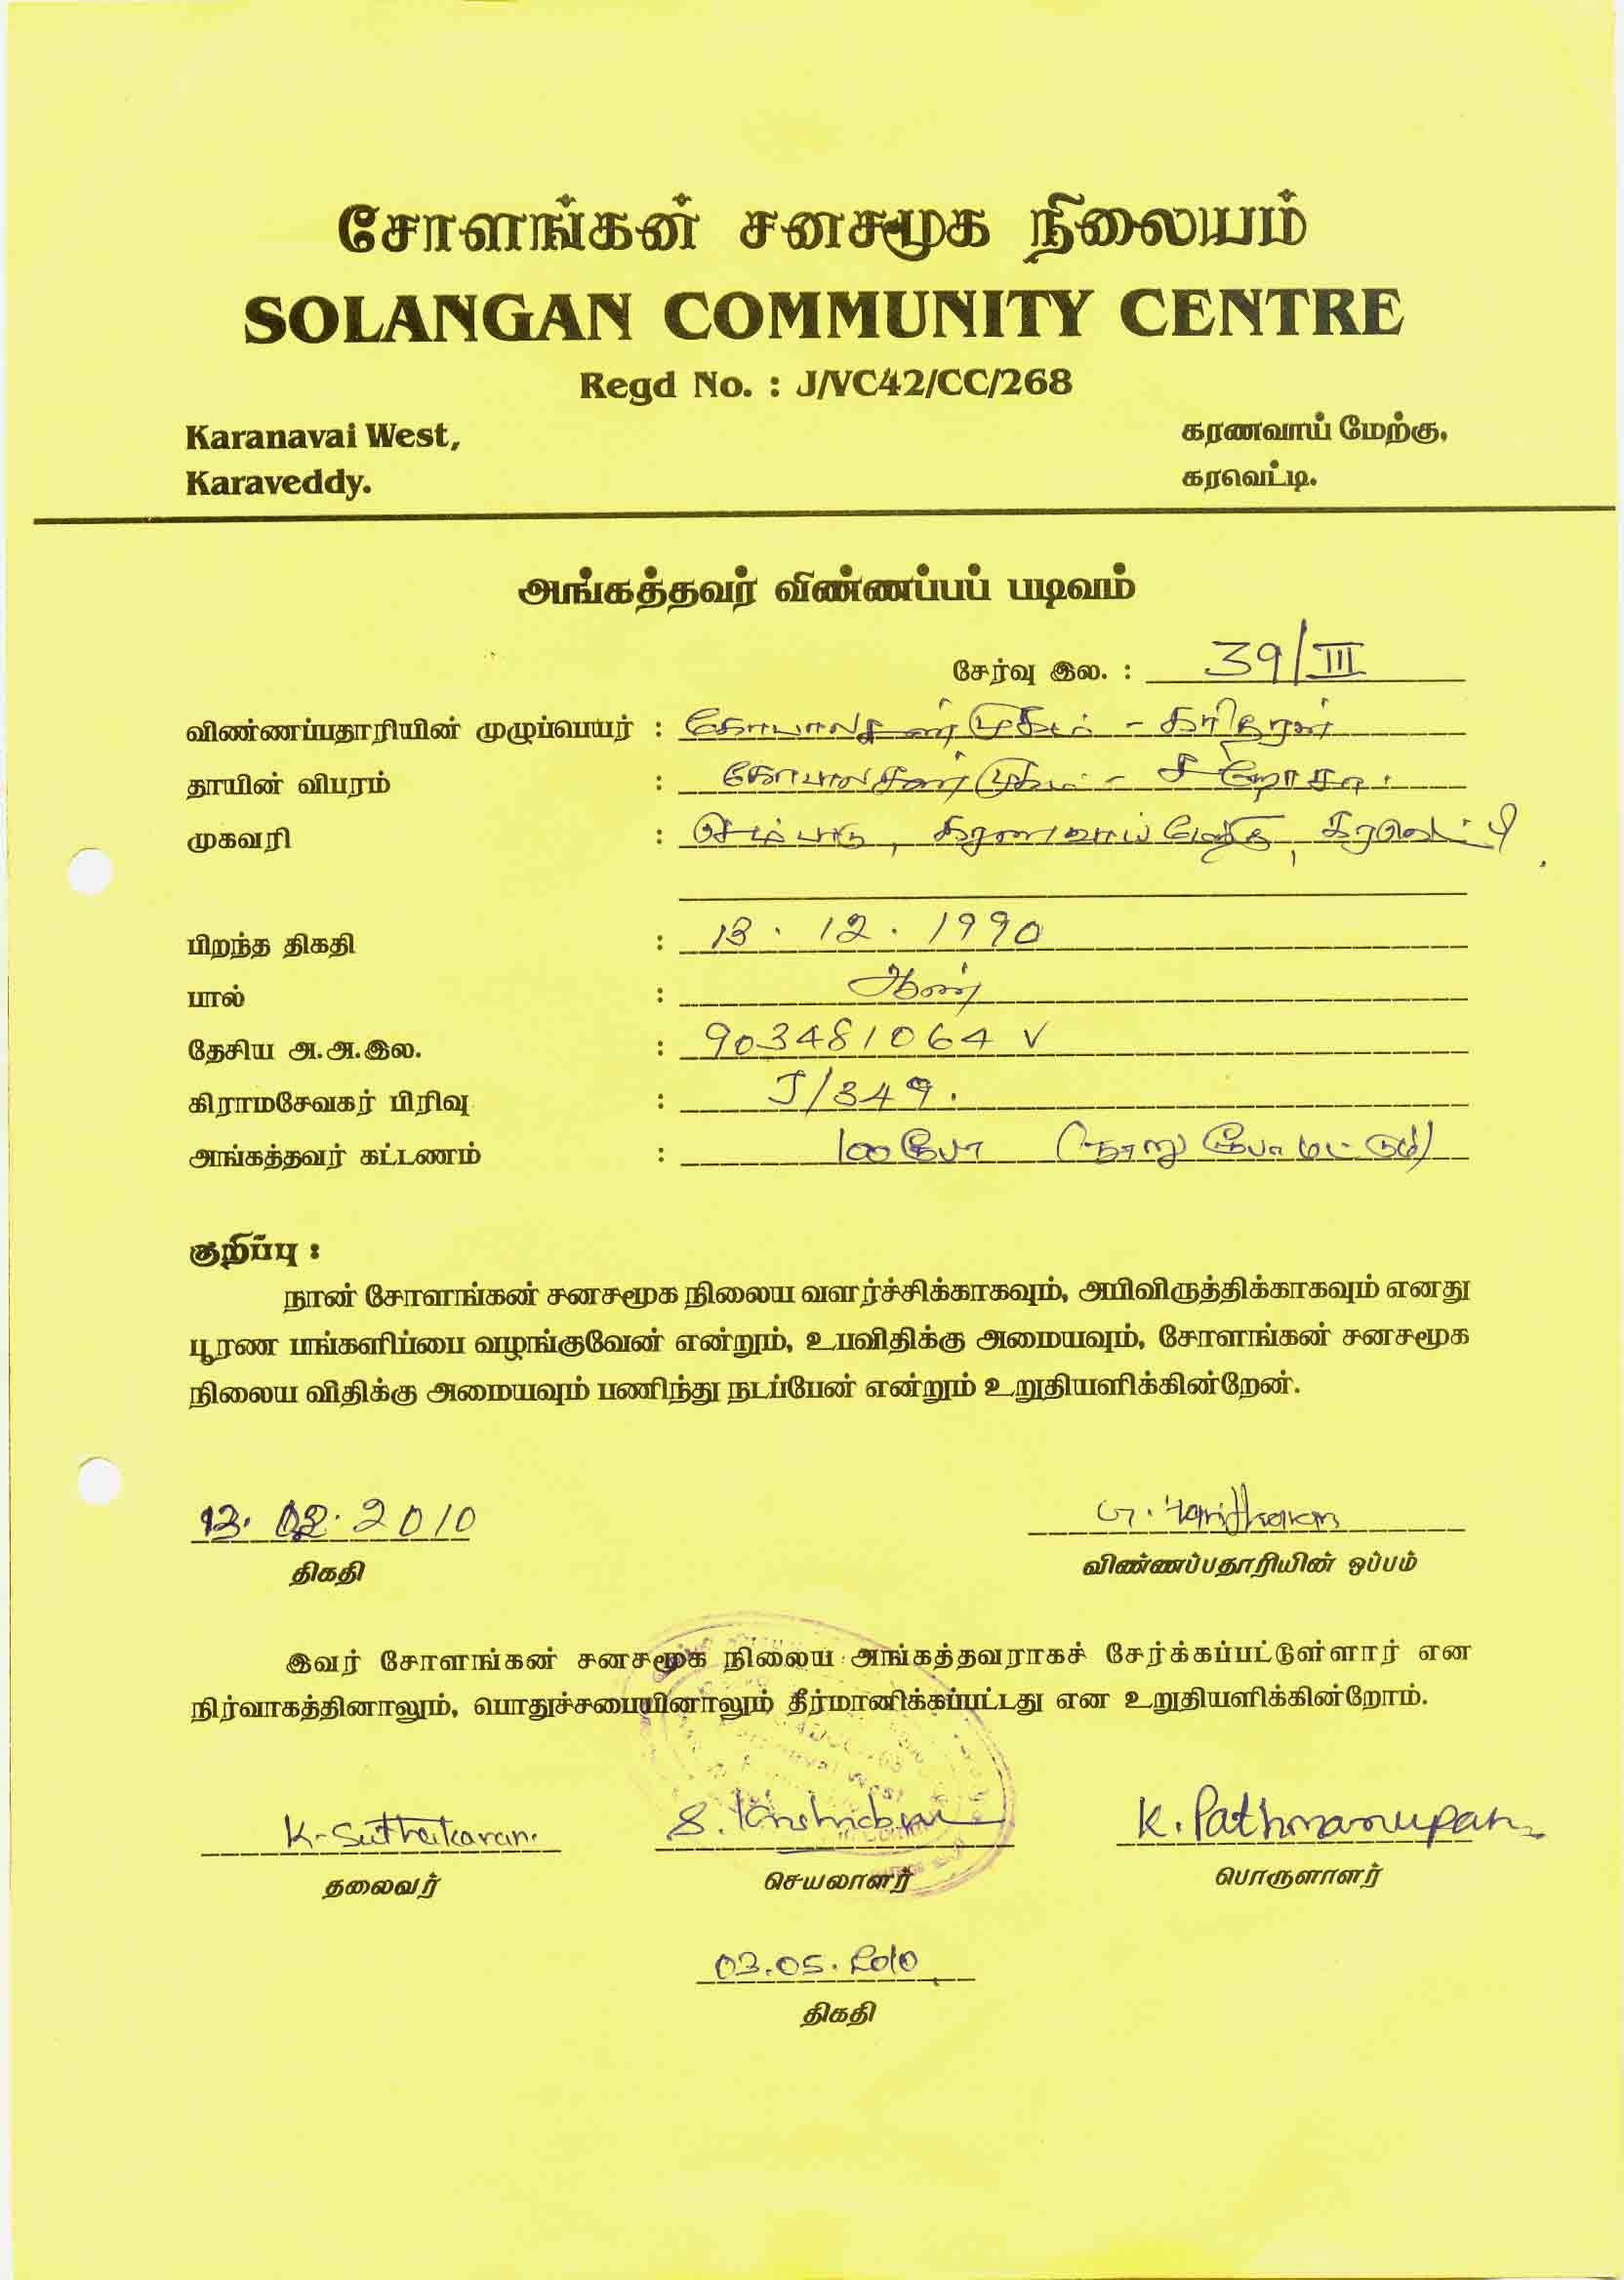 சோளங்கன் சனசமூக நிலையம்
SOLANGAN COMMUNITY CENTRE
Regd No. : J/VC42/CC/268
Karanavai West,
Karaveddy.
கரணவாய் மேற்கு,
கரவெட்டி.
அங்கத்தவர் விண்ணப்பப் படிவம்
சேர்வு இல. : 39/III
விண்ணப்பதாரியின் முழுப்பெயர் : கோபாலசண்முகம் - காரிதரன்
தாயின் விபரம் : கோபாலசண்முகம் -
முகவரி : செம்பாடு, கரணவாய் மேற்கு, கரவெட்டி.
பிறந்த திகதி : 13 . 12 . 1990
பால் : ஆண்
தேசிய அ.அ.இல. : 903481064 V
கிராமசேவகர் பிரிவு : J/349.
அங்கத்தவர் கட்டணம் : 100 ரூபா (நூறு ரூபா மட்டும்)
குறிப்பு :
நான் சோளங்கன் சனசமூக நிலைய வளர்ச்சிக்காகவும், அபிவிருத்திக்காகவும் எனது
பூரண பங்களிப்பை வழங்குவேன் என்றும், உபவிதிக்கு அமையவும், சோளங்கன் சனசமூக
நிலைய விதிக்கு அமையவும் பணிந்து நடப்பேன் என்றும் உறுதியளிக்கின்றேன்.
13. 02. 2010
G. Haritharan
திகதி
விண்ணப்பதாரியின் ஒப்பம்
இவர் சோளங்கன் சனசமூக நிலைய அங்கத்தவராகச் சேர்க்கப்பட்டுள்ளார் என
நிர்வாகத்தினாலும், பொதுச்சபையினாலும் தீர்மானிக்கப்பட்டது என உறுதியளிக்கின்றோம்.
K. Suthakaran.
S.
K. Pathmanupan
தலைவர்
செயலாளர்
பொருளாளர்
03.05.2010
திகதி